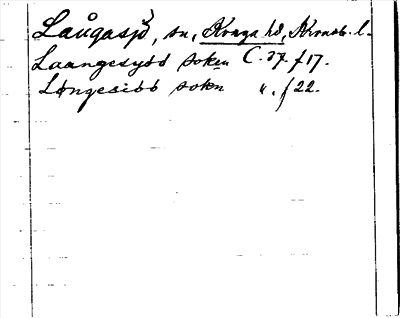 Långasjö, sn, Konga hd, Kronob. l.
Laangesyöö soken C. 37. f 17.
Långesiöö sokn ". f 22.